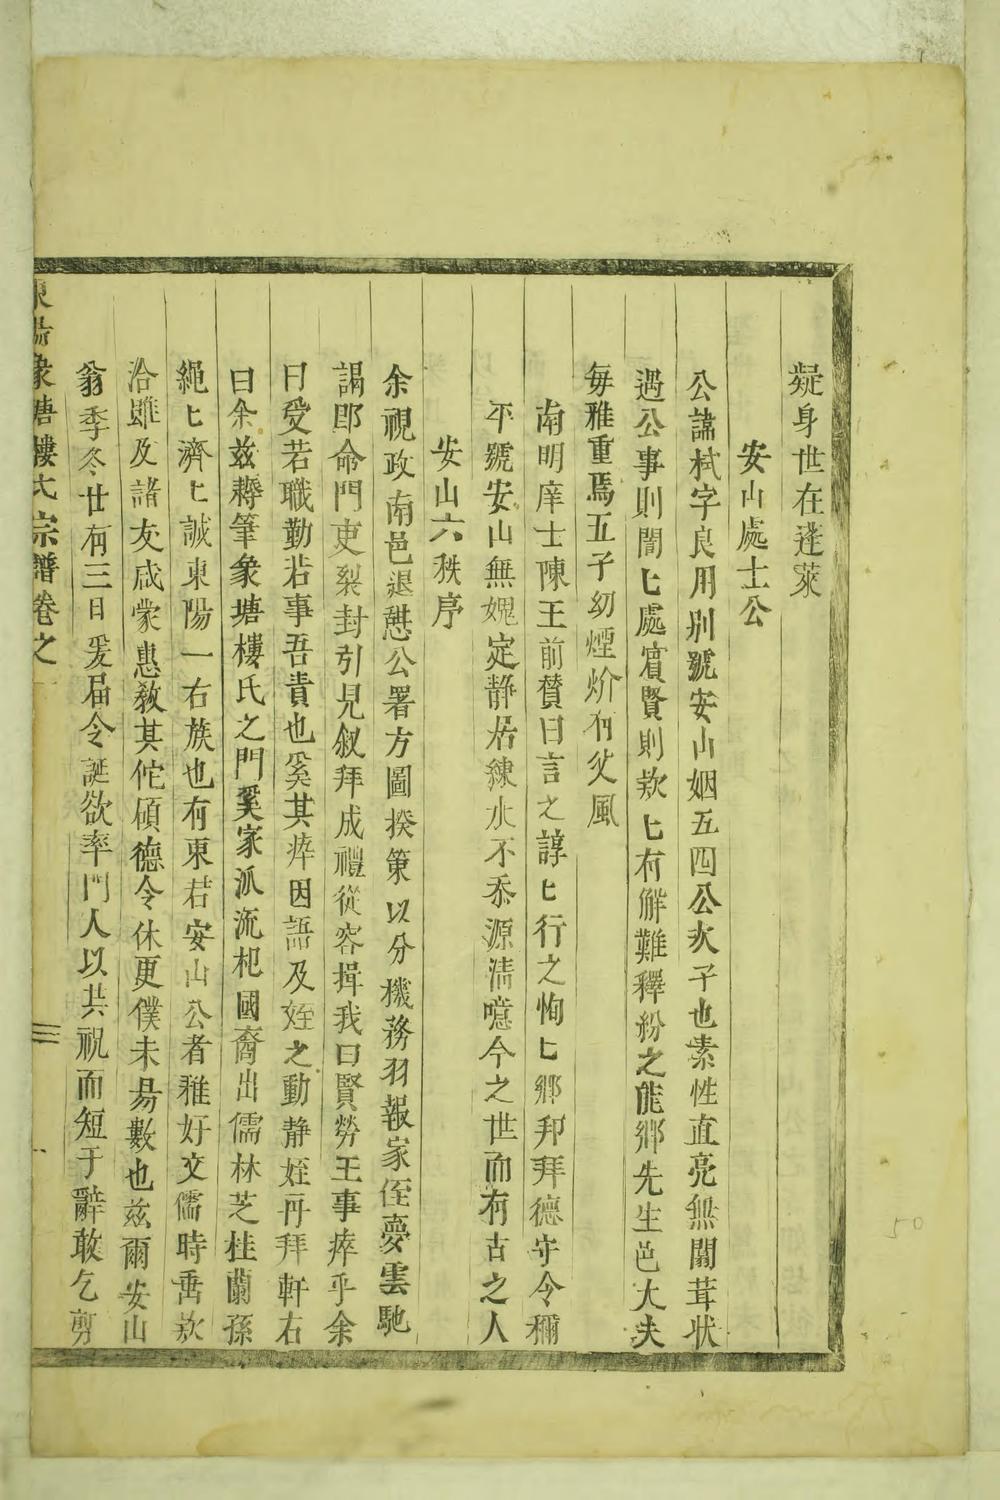 疑身世在蓬萊
安山處士公
公諱栻字良用別號安山姻五四公次子也素性直亮無闒茸状
遇公事則誾匕處賓賢則欵匕有觧難釋紛之能鄉先生邑大夫
每雅重焉五子幼煙炌有父風
南明庠士陳王前賛曰言之諄匕行之恂匕鄉邦拜德守令稱
平號安山無媿定静居練水不忝源清噫今之世而有古之人
安山六秩序
余視政南邑退憇公署方圖揆策以分機務羽報家侄夢雲馳
謁即命門吏裂封引見叙拜成禮從容揖我曰賢勞王事瘁乎余
曰受若職勤若事吾責也奚其瘁因語及姪之動静姪再拜軒右
曰余兹耨筆象塘樓氏之門奚家派流杞國裔出儒林芝桂蘭孫
繩匕濟匕誠東陽一右族也有東君安山公者雅好文儒時啇欵
洽雖及諸友咸蒙惠敎其佗碩德令休更僕未易數也兹爾安山
翁季冬廿有三日爰届令誕欲率門人以共祝而短于辭敢乞剪
東陽象塘樓氏宗譜卷之一